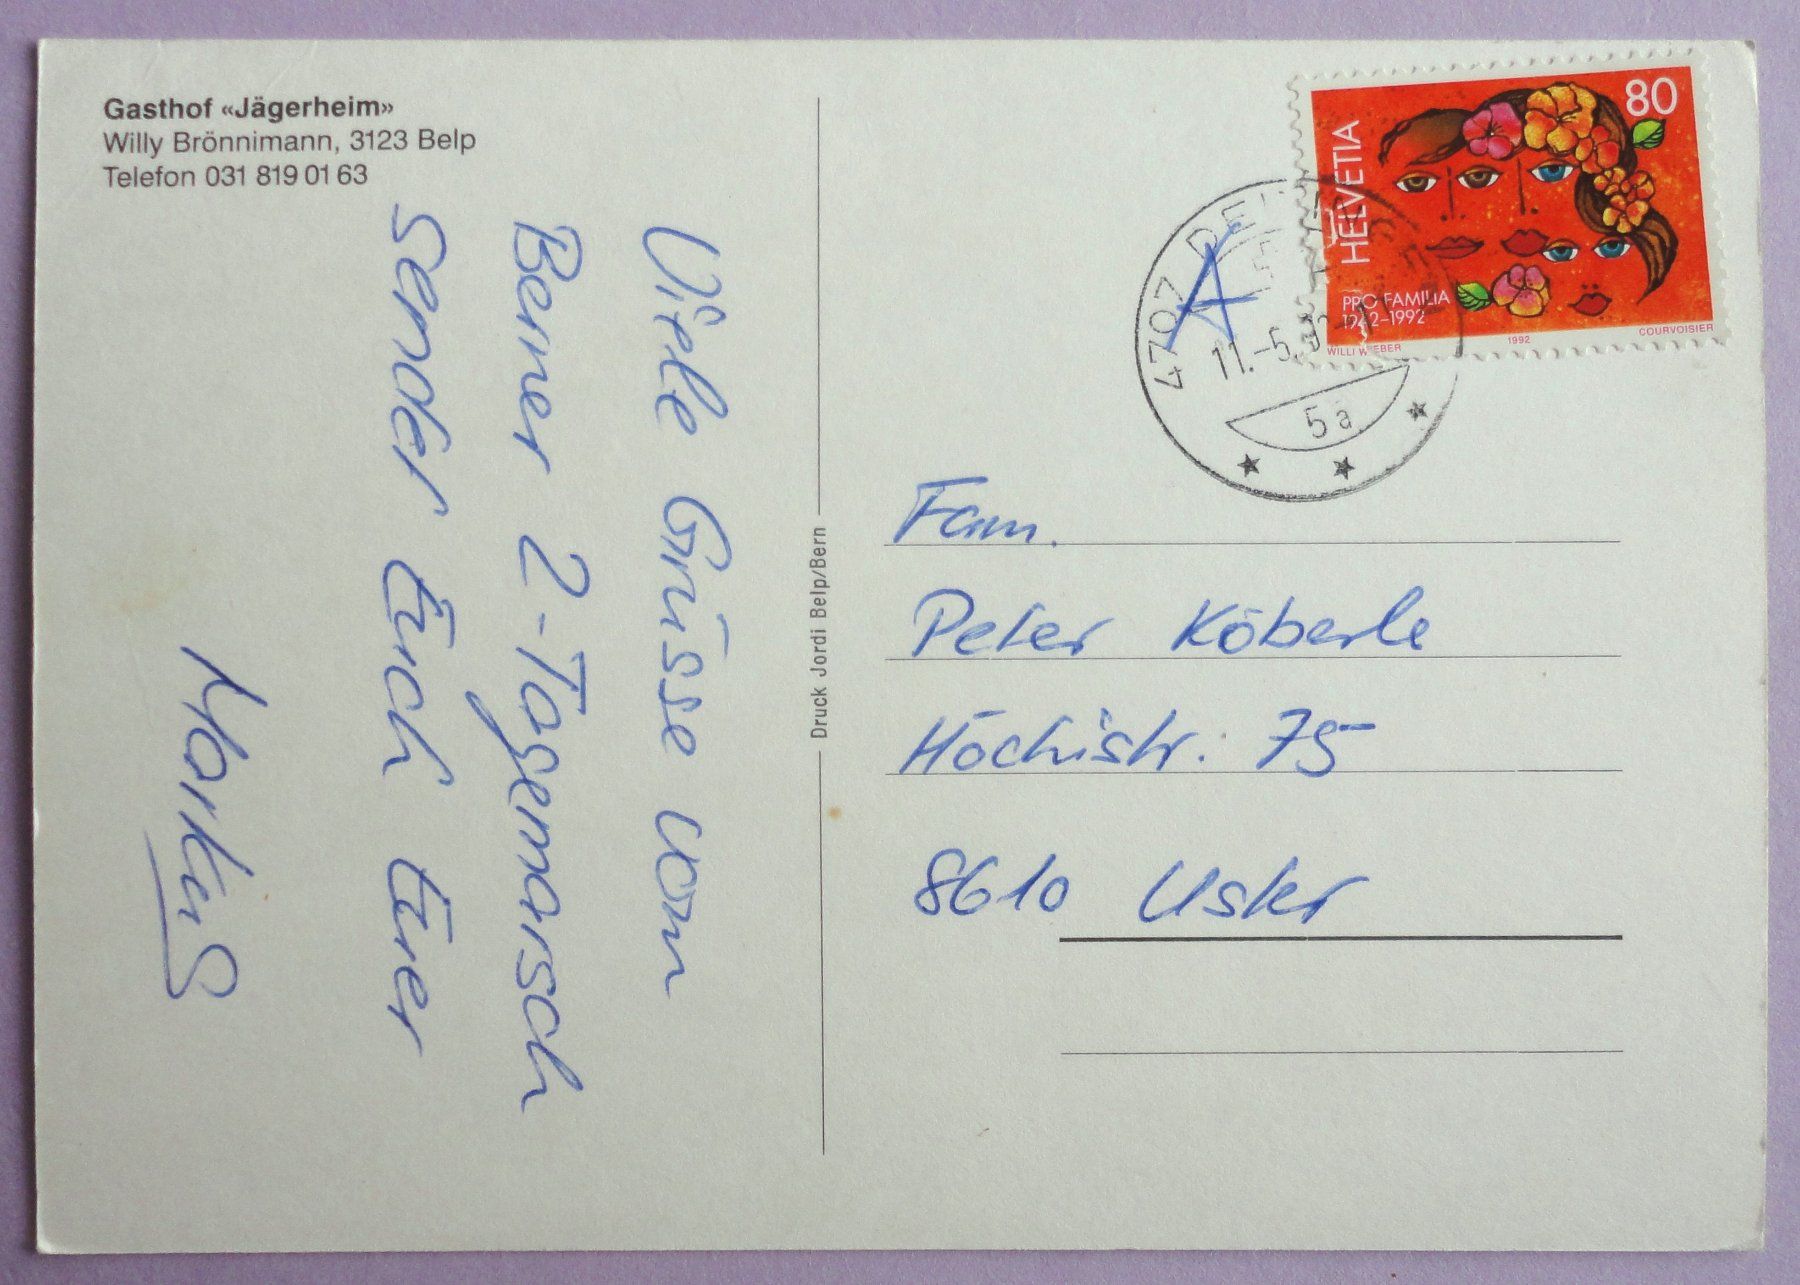 Gasthof «Jägerheim»
Willy Brönnimann, 3123 Belp
Telefon 031 819 01 63
Viele Grüsse vom
Berner 2-Tagemarsch
sendet Euch Euer
Markus
Druck Jordi Belp/Bern
A
4707
11.-5.
5a
80
HELVETIA
PRO FAMILIA
1942-1992
WILLI WEBER
1992
COURVOISIER
Fam.
Peter Köberle
Höchistr. 75
8610 Uster